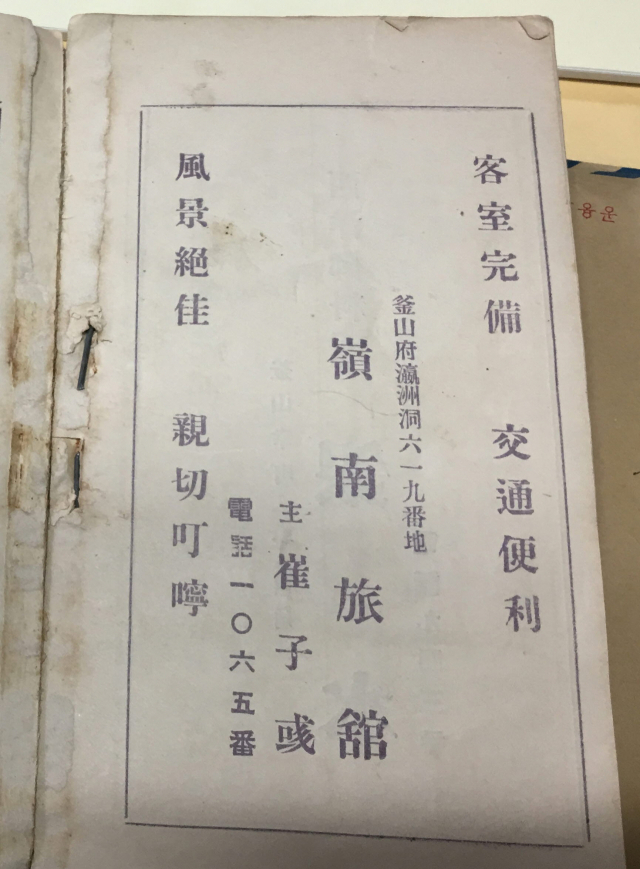 客室完備 交通便利
釜山府瀛洲洞六一九番地
嶺南旅舘
主 崔子彧
電話一〇六五番
風景絕佳 親切叮嚀